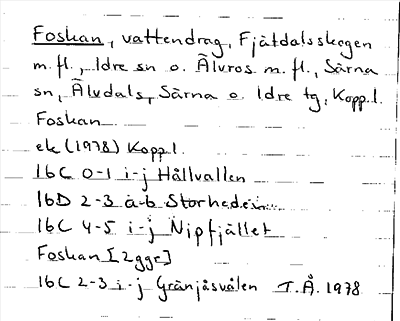 Foskan, vattendrag, Fjätdalsskogen
m.fl., Idre sn o. Älvros m.fl., Särna
sn, Älvdals, Särna o. Idre tg, Kopp.l.
Foskan
ek (1978) Kopp.l.
16C 0-1 i-j Hållvallen
16D 2-3 a-b Storheden
16C 4-5 i-j Nipfjället
Foskan [2ggr]
16C 2-3 i-j Gränjåsvålen T.Å. 1978